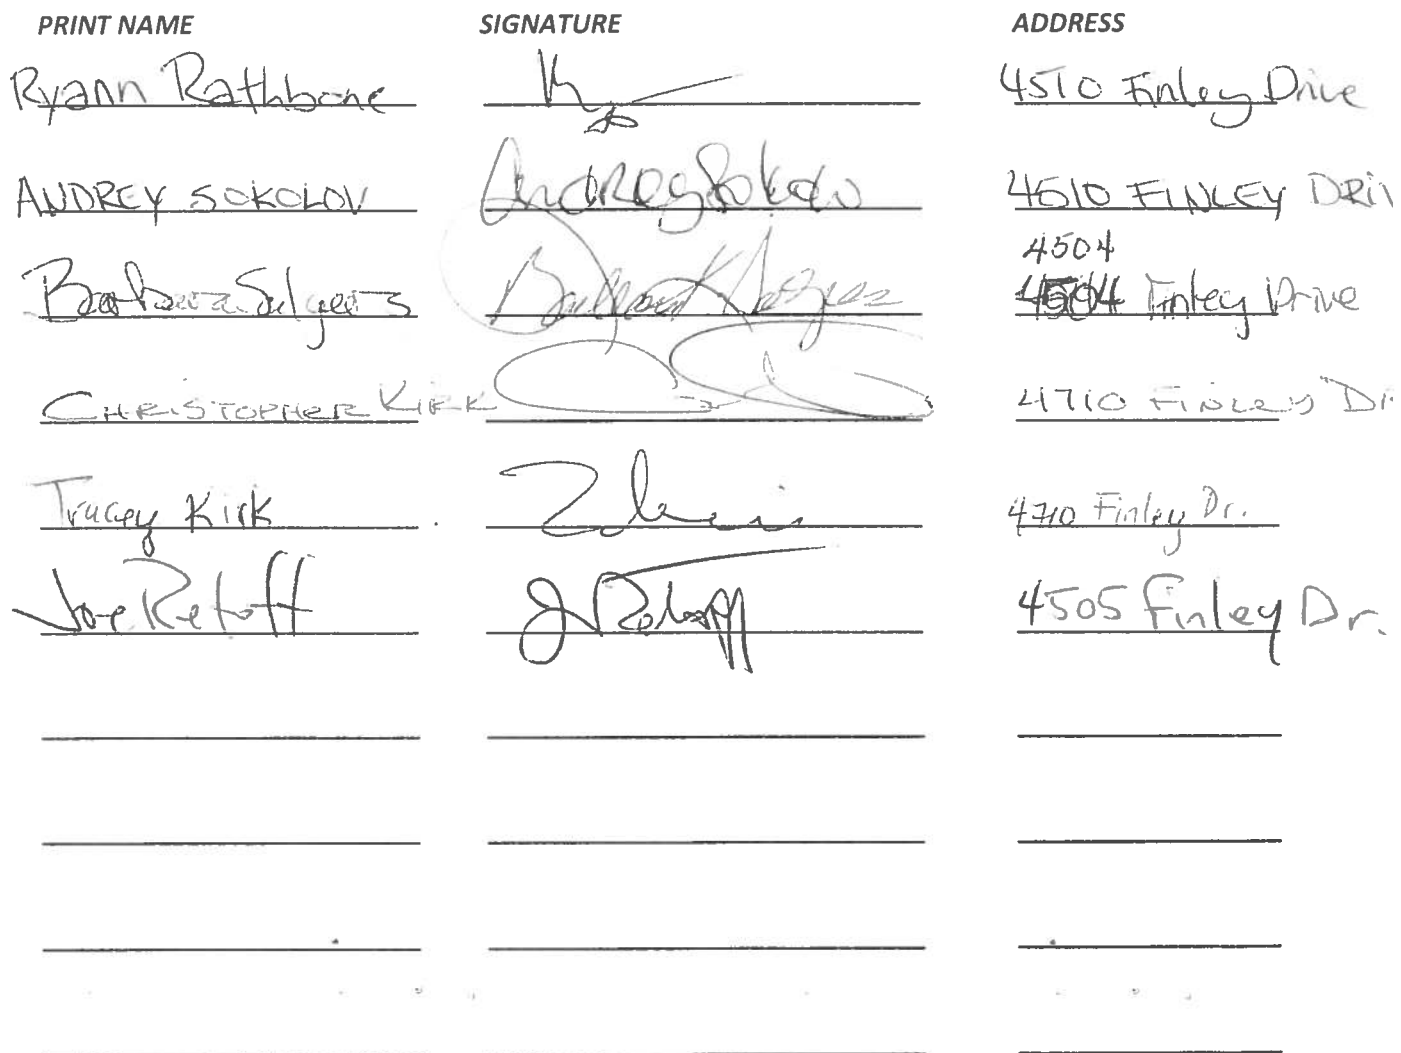 PRINT NAME SIGNATURE ADDRESS
Ryann Rathbone 4510 Finley Drive
ANDREY SOKOLOV Andrey Sokolov 4510 FINLEY DRIV
4504
Barbara 4504 Finley Drive
CHRISTOPHER KIRK 4710 FINLEY DR
Tracey Kirk 4710 Finley Dr.
Joe Retoff 4505 Finley Dr.